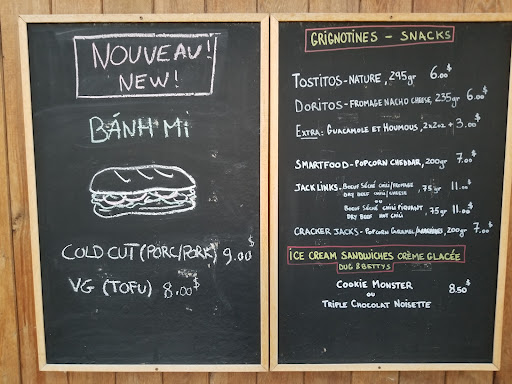 NOUVEAU!
NEW!
BÁNH MI
COLD CUT (PORC/PORK) 9.00$
VG (TOFU) 8.00$
GRIGNOTINES - SNACKS
TOSTITOS - NATURE, 295gr 6.00$
DORITOS - FROMAGE NACHO CHEESE, 235gr 6.00$
EXTRA: GUACAMOLE ET HOUMOUS, 2x2oz + 3.00$
SMARTFOOD - POPCORN CHEDDAR, 200gr 7.00$
JACK LINKS - BOEUF SÉCHÉ CHILI/FROMAGE
DRY BEEF CHILI/CHEESE, 75gr 11.00$
OU
BOEUF SÉCHÉ CHILI PIQUANT
DRY BEEF HOT CHILI, 75gr 11.00$
CRACKER JACKS - POPCORN CARAMEL/ 200gr 7.00$
ICE CREAM SANDWICHES CRÈME GLACÉE
DUG & BETTYS
COOKIE MONSTER
OU 8.50$
TRIPLE CHOCOLAT NOISETTE